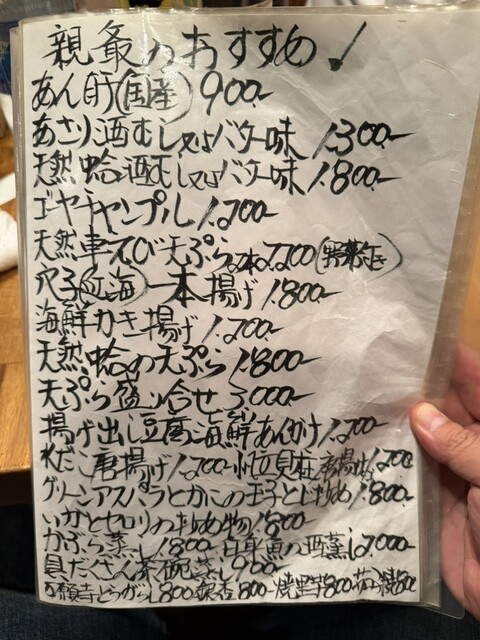 親爺のおすすめ!
あん肝(国産)900.-
あさり酒むし又はバター味 1.300.-
天然蛤酒むし又はバター味 1.800.-
ゴーヤチャンプル 1.200-
天然車えび天ぷら2本2.200(野菜付き)
穴子(江戸海)一本揚げ 1.800-
海鮮かき揚げ 1.200-
天然蛤の天ぷら 1.800-
天ぷら盛り合せ 3.000-
揚げ出し豆腐海鮮あんかけ 1.200-
たこ唐揚げ 1.200- 小柱貝柱唐揚げ 1.200
グリーンアスパラとかにの玉子とじ炒め 1.800-
いかとセロリの炒め物 1.800-
かぶら蒸し 1.800- 白身魚の酒蒸し 2.000-
具だくさん茶碗蒸し 900-
万願寺とうがらし 800 銀杏 800- 焼里芋 800 茄子焼 800